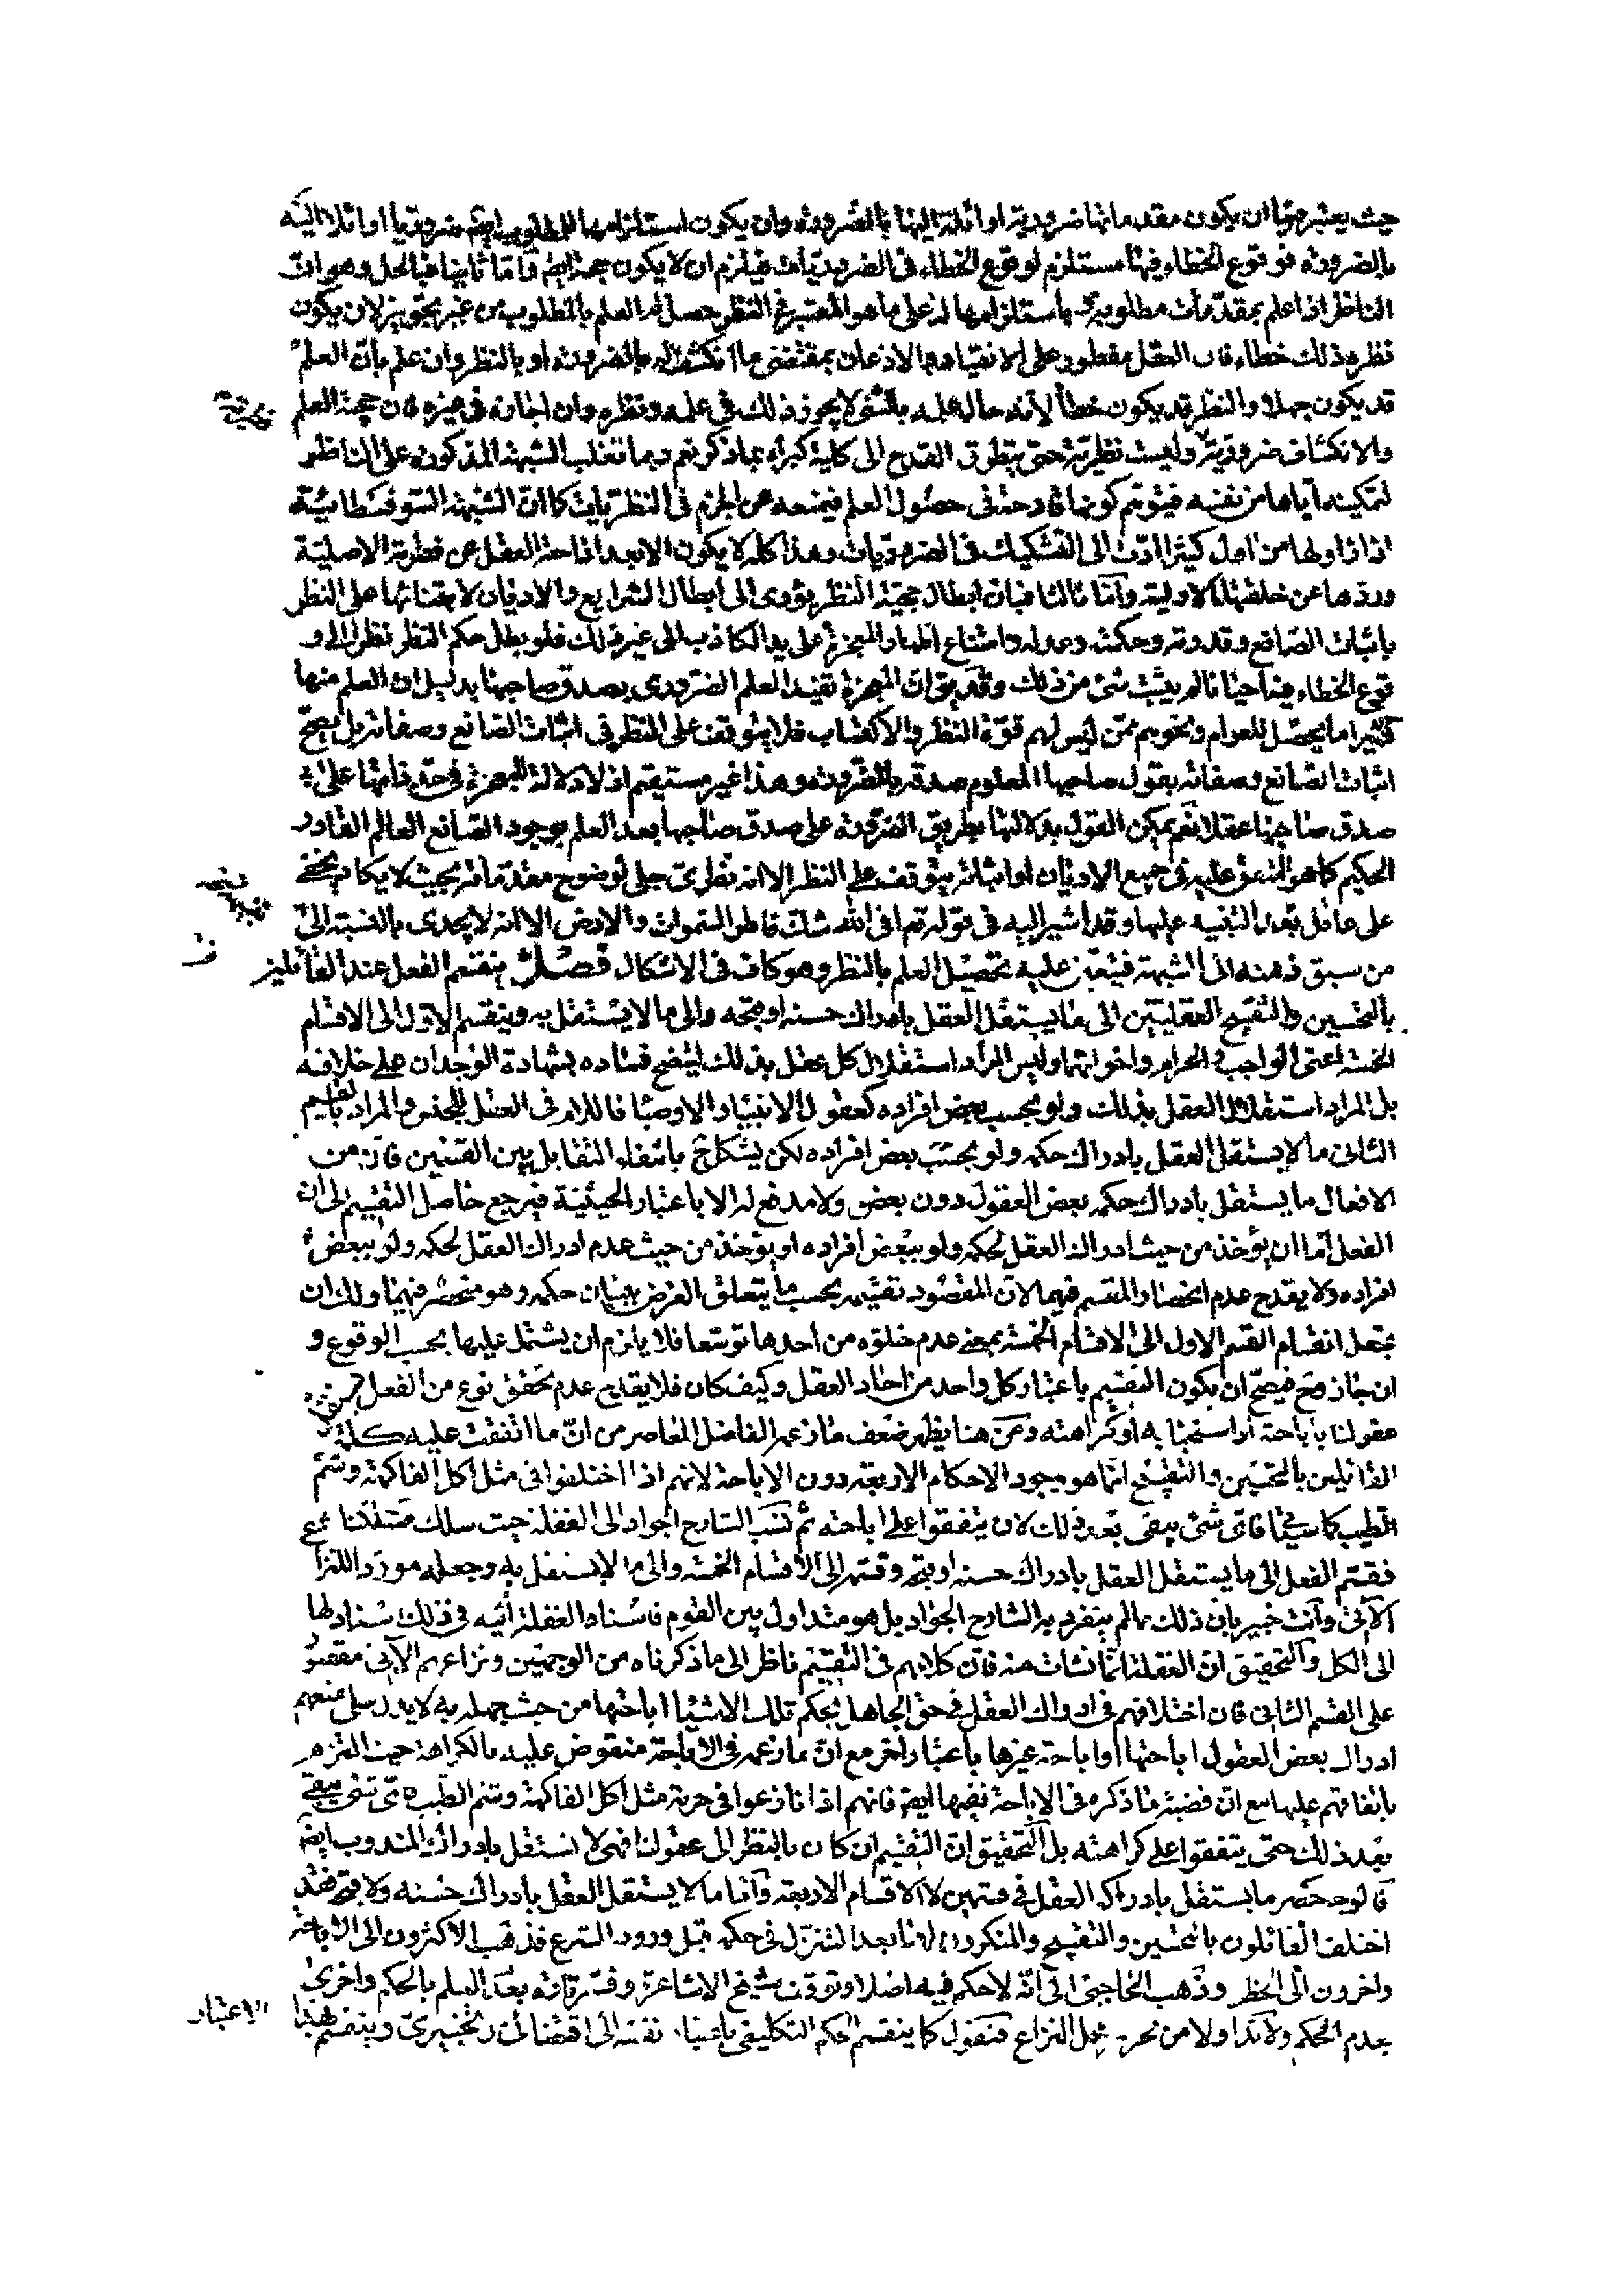 حيث يعتبر فيها ان يكون مقدماتها ضرورية او ائلة اليها بالضرورة وان يكون استلزامها للمطلوب ايضا ضروريا او ائلا اليه
بالضرورة فوقوع الخطاء فيها مستلزم لوقوع الخطاء فى الضروريات فيلزم ان لا يكون حجة ايضا واما ثانيا فبالحل وهو ان
الناظر اذا علم بمقدمات مطلوبه باستلزامها له على ما هو المعتبر فى النظر حصل له العلم بالمطلوب من غير تجويز لان يكون
نظره ذلك خطاء فان العقل مفطور على الانقياد والاذعان بمقتضى ما انكشف له بالضرورة او بالنظر وان علم بان العلم
قد يكون جهلا والنظر قد يكون خطأ لانه حال علمه بالشئ لا يجوز ذلك فى علمه ونظره وان اجازه فى غيره فان حجية العلم
والانكشاف ضرورية وليست نظرية حتى يتطرق القدح الى كلية كبراه بما ذكرتم وربما تغلب الشبهة المذكورة على الناظر
لتمكينه اياها من نفسه فيتوهم كونها قادحة فى حصول العلم فيمنعه عن الجزم فى النظريات كما ان الشبهة السوفسطائية
اذا زاولها من اهل كثيرا ادت الى التشكيك فى الضروريات وهذا كله لا يكون الا بعد ازاحة العقل عن فطرته الاصلية
وردها عن خلقتها الاولية واما ثالثا فبان ابطال حجية النظر يؤدى الى ابطال الشرايع والاديان لابتنائها على النظر
باثبات الصانع وقدرته وحكمته وعدله وامتناع اظهار المعجزة على يد الكاذب الى غير ذلك فلو بطل حكم النظر نظرا الى و
قوع الخطاء فيه احيانا لم يثبت شئ من ذلك وقد يق ان المعجزة تفيد العلم الضرورى بصدق صاحبها بدليل ان العلم منها
كثيرا ما يحصل للعوام ونحوهم ممن ليس لهم قوة النظر والاكتساب فلا يتوقف على النظر فى اثبات الصانع وصفاته بل يصح
اثبات الصانع وصفاته بقول صاحبها المعلوم صدقه بالضرورة وهذا غير مستقيم اذ لا دلالة للمعجزة فى حد ذاتها على
صدق صاحبها عقلا نعم يمكن القول بدلالتها بطريق الضرورة على صدق صاحبها بعد العلم بوجود الصانع العالم القادر
الحكيم كما هو المتفق عليه فى جميع الاديان او اثباته يتوقف على النظر الا انه نظرى جلى لوضوح مقدماته بحيث لا يكاد يخفى
على عاقل بعد التنبيه عليها وقد اشير اليه فى قوله تع افى الله شك فاطر السموات والارض الا انه لا يجدى بالنسبة الى
من سبق ذهنه الى الشبهة فيتعين عليه تحصيل العلم بالنظر وهو كاف فى الاشكال فصل ينقسم الفعل عند القائلين
بالتحسين والتقبيح العقليين الى ما يستقل العقل بادراك حسنه او قبحه والى ما لا يستقل به وينقسم الاول الى الاقسام
الخمسة اعنى الواجب والحرام واخواتهما وليس المراد استقلال كل عقل بذلك ليتضح فساده بشهادة الوجدان على خلافه
بل المراد استقلال العقل بذلك ولو بحسب بعض افراده كعقول الانبياء والاوصياء فاللام فى العقل للجنس والمراد بالقسم
الثانى ما لا يستقل العقل بادراك حكمه ولو بحسب بعض افراده لكن يشكل ح بانتفاء التقابل بين القسمين فان من
الافعال ما يستقل بادراك حكمه بعض العقول دون بعض ولا مدفع له الا باعتبار الحيثية فيرجع حاصل التقسيم الى ان
الفعل اما ان يؤخذ من حيث ادراك العقل لحكمه ولو ببعض افراده او يؤخذ من حيث عدم ادراك العقل لحكمه ولو ببعض
افراده ولا يقدح عدم انحصار المقسم فيهما لان المقصود تقسيمه بحسب ما يتعلق الغرض ببيان حكمه وهو منحصر فيهما ولك ان
تجعل انقسام القسم الاول الى الاقسام الخمسة بمعنى عدم خلوه من احدها توسعا فلا يلزم ان يشتمل عليها بحسب الوقوع و
ان جاز وح فيصح ان يكون التقسيم باعتبار كل واحد من احاد العقل وكيف كان فلا يقدح عدم تحقق نوع من الفعل
عقولنا باباحته او استحبابه او كراهته ومن هنا يظهر ضعف ما زعمه الفاضل المعاصر من ان ما اتفقت عليه كلمة
القائلين بالتحسين والتقبيح انما هو وجود الاحكام الاربعة دون الاباحة لانهم اذا اختلفوا فى مثل اكل الفاكهة وشم
الطيب كما سيجئ فاى شئ يبقى بعد ذلك لان يتفقوا على اباحته ثم نسب الشارح الجواد الى الغفلة حيث سلك مسلكنا
فقسم الفعل الى ما يستقل العقل بادراك حسنه او قبحه وقسمه الى الاقسام الخمسة والى ما لا يستقل به وجعله مورد النزاع
الاتى وانت خبير بان ذلك مما لم يتفرد به الشارح الجواد بل هو متداول بين القوم فاسناد الغفلة اليه فى ذلك اسناد لها
الى الكل والتحقيق ان الغفلة انما نشات منه فان كلامهم فى التقسيم ناظر الى ما ذكرناه من الوجهين ونزاعهم الاتى مقصور
على القسم الثانى فان اختلافهم فى ادراك العقل فى حق الجاهل بحكم تلك الاشياء اباحتها من حيث جهله به لا
ادراك بعض العقول اباحتها او اباحة غيرها باعتبار اخر مع ان ما زعمه فى الاباحة منقوض عليه بالكراهة حيث التزم
باتفاقهم عليها مع ان قضية ما ذكره فى الاباحة نفيها ايضا فانهم اذا نازعوا فى حرمة مثل اكل الفاكهة وشم الطيب فاى شئ يبقى
بعد ذلك حتى يتفقوا على كراهته بل التحقيق ان التقسيم ان كان بالنظر الى عقولنا فهى لا تستقل بادراك المندوب ايضا
فالوجه حصر ما يستقل بادراكه العقل فى قسمين لا الاقسام الاربعة واما ما لا يستقل العقل بادراك حسنه ولا قبحه فقد
اختلف القائلون بالتحسين والتقبيح والمنكرون لهما بعد التنزل فى حكمه قبل ورود الشرع فذهب الاكثرون الى الاباحة
واخرون الى الحظر وذهب الحاجبى الى انه لا حكم فيه اصلا وتوقف شيخ الاشاعرة وفسر تارة بعدم العلم بالحكم واخرى
بعدم الحكم ولابد اولا من تحرير محل النزاع فنقول كما ينقسم الحكم التكليفى باعتبار نفسه الى اقتضائى وتخييرى وينقسم بهذا
الاعتبار